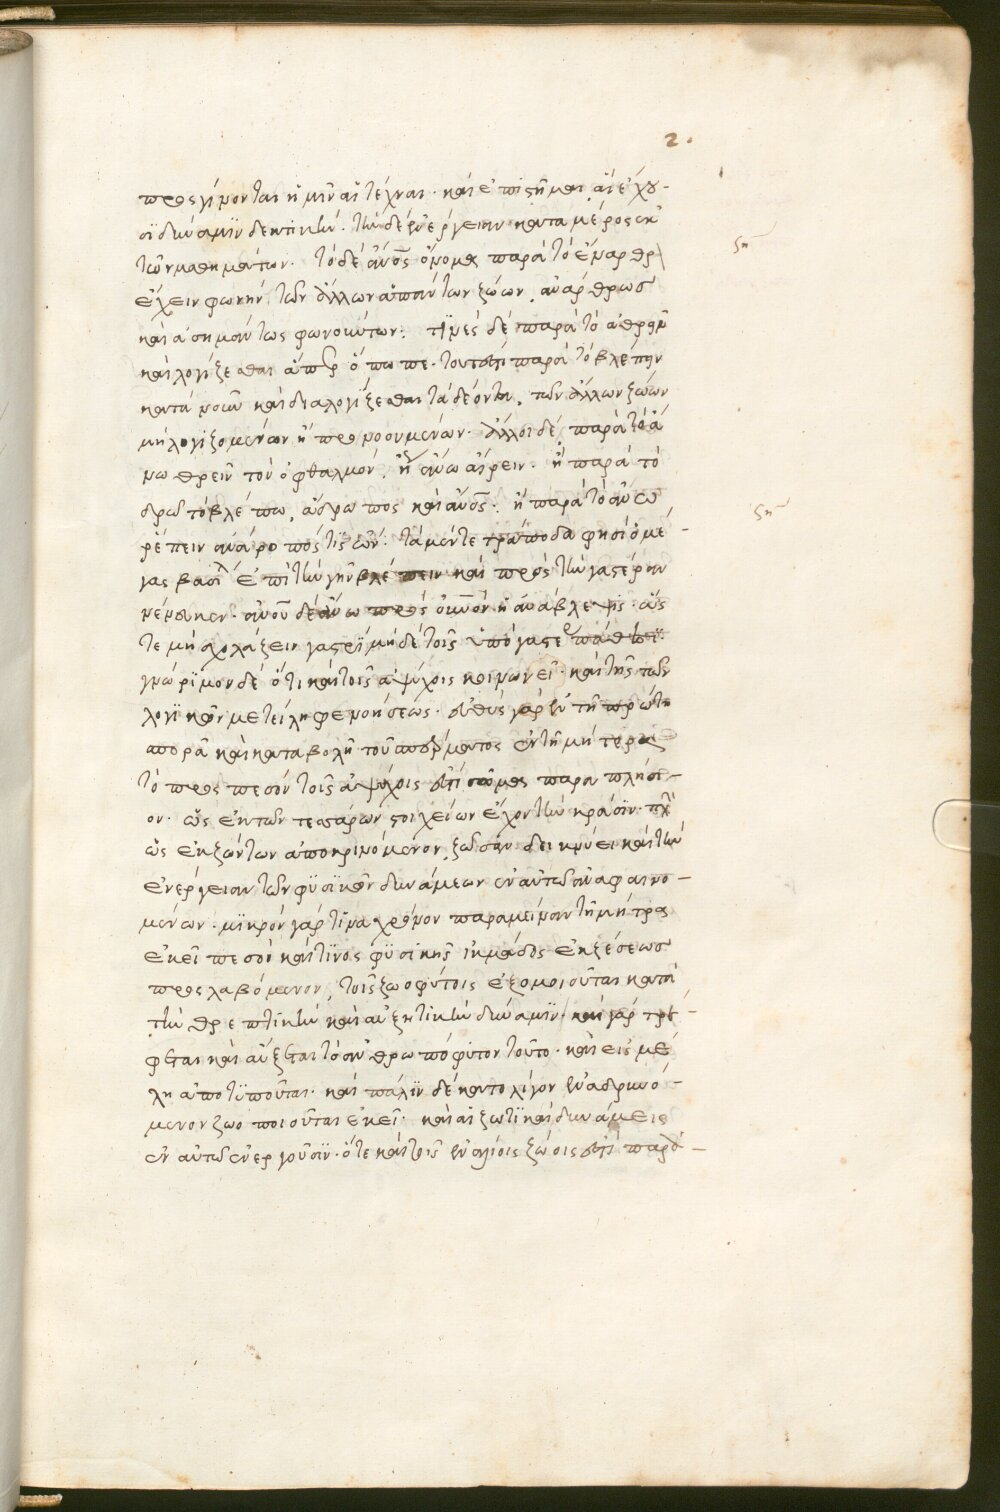 2.
προσγίνονται ἡμῖν αἱ τέχναι· καὶ ἐπιστῆμαι, αἳ ἔχου-
σι δύναμιν δεκτικήν· τὴν δὲ ἐνέργειαν κατὰ μέρος ἐκ
τῶν μαθημάτων. τὸ δὲ ἀνος ὄνομα παρὰ τὸ ἔναρθρ
ἔχειν φωνήν, τῶν ἄλλων ἁπάντων ζώων, ἀνάρθρως
ση
καὶ ἀσημάντως φωνούντων. τινὲς δὲ παρὰ τὸ ἀθρεῖν
καὶ λογίζεσθαι ἅπερ ὄπωπε. τουτέστι παρὰ τὸ βλέπειν
κατὰ νοῦν καὶ διαλογίζεσθαι τὰ δέοντα, τῶν ἄλλων ζώων
μὴ λογιζομένων ἢ προνοουμένων. ἄλλοι δὲ, παρὰ τὸ ἄ
νω θρεῖν τὸν ὀφθαλμόν, ἢ ἄνω αἴρειν. ἢ παρὰ τὸ
δρῶ τὸ βλέπω, ἄδρωπος καὶ ἄνος. ἢ παρὰ τὸ ἄνω
ση
ῥέπειν ἀνάροπός τις ὤν. τὰ μέντε τράποδα φησὶ ὁ μέ-
γας βασίλ ἐπὶ τὴν γῆν βλέπειν καὶ πρὸς τὴν γαστέρα
νένευκεν. ἀνου δὲ ἄνω πρὸς οὐνὸν ἡ ἀνάβλεψις. ὥς
τε μὴ σχολάζειν γαστρὶ μὴ δὲ τοῖς ὑπὸ γαστέρα πάθεσι.
γνώριμον δὲ ὅτι καὶ τοῖς ἀψύχοις κοινωνεῖ. καὶ τῆς τῶν
λογικῶν μετείληφε νοήσεως. εὐθὺς γὰρ ἐν τῇ πρώτῃ
σπορᾷ καὶ καταβολῇ τοῦ σπέρματος ἐν τῇ μήτρᾳ
τὸ προσπεσὸν τοῖς ἀψύχοις ἐστὶ σῶμα παραπλήσι-
ον. ὡς ἐκ τῶν τεσσάρων στοιχείων ἔχον τὴν κρᾶσιν. πλὴν
ὡς ἐκ ζώντων ἀποκρινόμενον, ζῶσαν δεικνύει καὶ τὴν
ἐνέργειαν τῶν φυσικῶν δυνάμεων ἐν αὐτῶ ἀναφαινο-
μένων. μικρὸν γάρ τινα χρόνον παραμεῖναν τῇ μήτρᾳ
ἐκεῖ πεσὸν καὶ τινὸς φυσικῆς ἰκμάδος ἐκζέσεως
προσλαβόμενον, τοῖς ζωοφύτοις ἐξομοιοῦται κατὰ
τὴν θρεπτικὴν καὶ αὐξητικὴν δύναμιν. καὶ γὰρ τρέ-
φεται καὶ αὔξεται τὸ ἀνθρωπόφυτον τοῦτο. καὶ εἰς μέ
λη ἀποτυποῦται. καὶ πάλιν δὲ κατολίγον ἐναδρυνό-
μενον ζωοποιοῦται ἐκεῖ. καὶ αἱ ζωτικαὶ δυνάμεις
ἐν αὐτῶ ἐνεργοῦσιν. ὅτε καὶ τοῖς ἐναγίοις ζώοις ἐστὶ παρὰ-